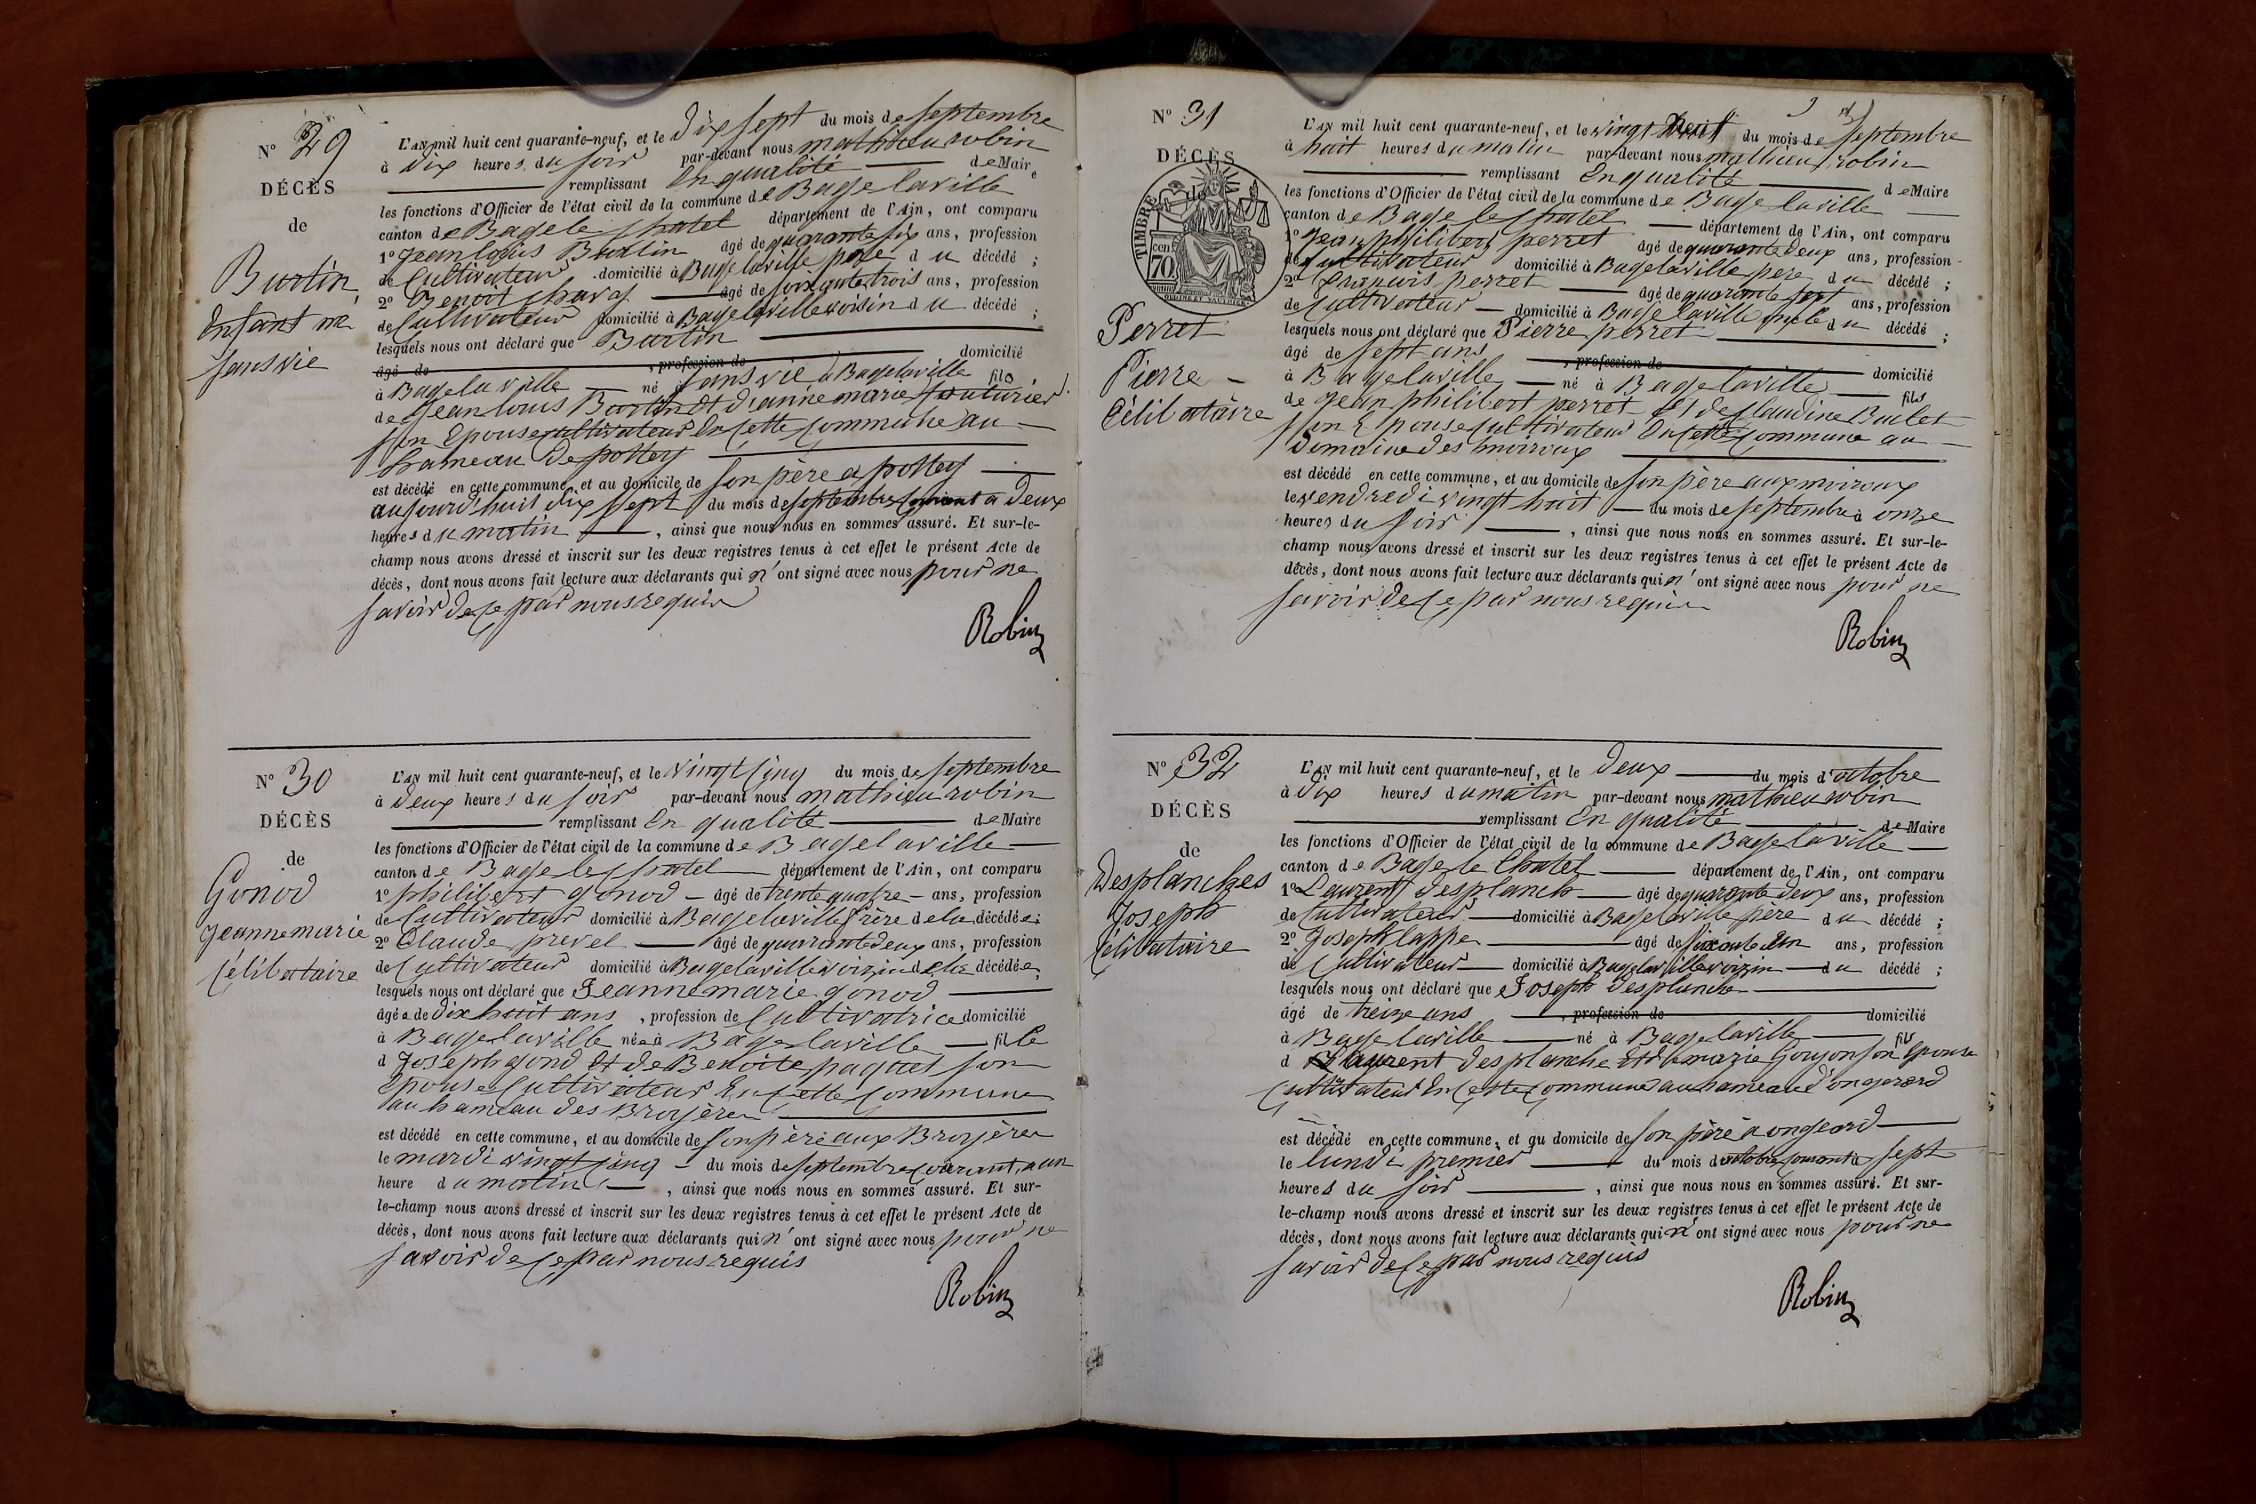 N° 29
DÉCÈS
de
Burtin
Enfant né
sans vie
L'AN mil huit cent quarante-neuf, et le dix sept du mois de septembre
à dix heures du soir par-devant nous mathieu robin
remplissant En qualité de Maire
les fonctions d'Officier de l'état civil de la commune de Bagelaville
canton de Bagele Chatel département de l'Ain, ont comparu
1° Jean louis Burtin âgé de quarante six ans, profession
de Cultivateur domicilié à Bagelaville père du décédé ;
2° Benoit âgé de soixante trois ans, profession
de Cultivateur domicilié à Bagelaville voisin du décédé ;
lesquels nous ont déclaré que Burtin
âgé de , profession de domicilié
à Bagelaville né sans vie à Bagelaville fils
de Jean louis Burtin Et d jeanne marie
son Epouse cultivateur En Cette Commune au
hameau de pottey
est décédé en cette commune, et au domicile de son père a pottey
aujourd'huit dix sept du mois de septembre courant à deux
heures du matin , ainsi que nous nous en sommes assuré. Et sur-le-
champ nous avons dressé et inscrit sur les deux registres tenus à cet effet le présent Acte de
décès, dont nous avons fait lecture aux déclarants qui n'ont signé avec nous pour ne
savoir de Ce par nous requis
Robin
N° 30
DÉCÈS
de
Gonod
Jeanne marie
Célibataire
L'AN mil huit cent quarante-neuf, et le vingt Cinq du mois de septembre
à deux heures du soir par-devant nous mathieu robin
remplissant En qualité de Maire
les fonctions d'Officier de l'état civil de la commune de Bagelaville
canton de Bage le Chatel département de l'Ain, ont comparu
1° philibert gonod âgé de trente quatre ans, profession
de Cultivateur domicilié à Bagelaville frère de la décédée ;
2° Claude prevel âgé de quarante deux ans, profession
de Cultivateur domicilié à Bagelaville voizin de la décédée ;
lesquels nous ont déclaré que Jeanne marie gonod
âgée de dix huit ans , profession de Cultivatrice domicilié
à Bagelaville née à Bagelaville fille
d Joseph gond Et de Benoite paquet son
Epouse Cultivateur En Cette Commune
au hameau des Broyères
est décédé en cette commune, et au domicile de son père aux Broyères
le mardi vingt cinq du mois de septembre Courant, a un
heure du matin , ainsi que nous nous en sommes assuré. Et sur-
le-champ nous avons dressé et inscrit sur les deux registres tenus à cet effet le présent Acte de
décès, dont nous avons fait lecture aux déclarants qui n'ont signé avec nous pour ne
savoir de Ce par nous requis
Robin
N° 31
DÉCÈS
de
TIMBRE
cen
70
Perret
Pierre
Célibataire
L'AN mil huit cent quarante-neuf, et le vingt neuf du mois de septembre
à huit heures du matin par-devant nous mathieu robin
remplissant En qualité de Maire
les fonctions d'Officier de l'état civil de la commune de Bagelaville
canton de Bage le Chatel département de l'Ain, ont comparu
1° Jean philibert perret âgé de quarante deux ans, profession
de Cultivateur domicilié à Bagelaville père du décédé ;
2° francois perret âgé de quarante sept ans, profession
de Cultivateur domicilié à Bagelaville oncle du décédé ;
lesquels nous ont déclaré que Pierre perret
âgé de sept ans , profession de domicilié
à Bagelaville né à Bagelaville fils
de Jean philibert perret Et de Claudine Bulet
son Epouse Cultivateur En Cette Commune au
domaine des moiroux
est décédé en cette commune, et au domicile de son père aux moiroux
le vendredi vingt huit du mois de septembre à onze
heures du soir , ainsi que nous nous en sommes assuré. Et sur-le-
champ nous avons dressé et inscrit sur les deux registres tenus à cet effet le présent Acte de
décès, dont nous avons fait lecture aux déclarants qui n'ont signé avec nous pour ne
savoir de Ce par nous requis
Robin
N° 32
DÉCÈS
de
Desplanches
Joseph
Célibataire
L'AN mil huit cent quarante-neuf, et le deux du mois d'octobre
à dix heures du matin par-devant nous mathieu robin
remplissant En qualité de Maire
les fonctions d'Officier de l'état civil de la commune de Bagelaville
canton de Bage le Chatel département de l'Ain, ont comparu
1° Laurent desplanch âgé de quarante deux ans, profession
de Cultivateur domicilié à Bagelaville père du décédé ;
2° Joseph lappe âgé de soixante un ans, profession
de Cultivateur domicilié à Bagelaville voizin du décédé ;
lesquels nous ont déclaré que Joseph desplanche
âgé de treize ans , profession de domicilié
à Bagelaville né à Bagelaville fils
d Laurent desplanche Et de marie Goujon son Epouse
Cultivateur En Cette Commune au hameau d'ongerard
est décédé en cette commune, et au domicile de son père a ongeard
le lundi premier du mois d'octobre courant à sept
heures du soir , ainsi que nous nous en sommes assuré. Et sur-
le-champ nous avons dressé et inscrit sur les deux registres tenus à cet effet le présent Acte de
décès, dont nous avons fait lecture aux déclarants qui n'ont signé avec nous pour ne
savoir de Ce par nous requis
Robin